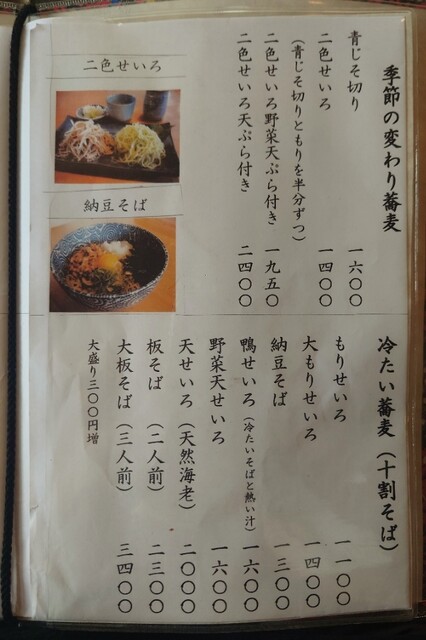 季節の変わり蕎麦
青じそ切り 一六〇〇
二色せいろ 一四〇〇
（青じそ切りともりを半分ずつ）
二色せいろ野菜天ぷら付き 一九五〇
二色せいろ天ぷら付き 二四〇〇
二色せいろ
納豆そば
冷たい蕎麦（十割そば）
もりせいろ 一一〇〇
大もりせいろ 一四〇〇
納豆そば 一三〇〇
鴨せいろ（冷たいそばと熱い汁） 一六〇〇
野菜天せいろ 一六〇〇
天せいろ（天然海老） 二〇〇〇
板そば（二人前） 二三〇〇
大板そば（三人前） 三四〇〇
大盛り三〇〇円増